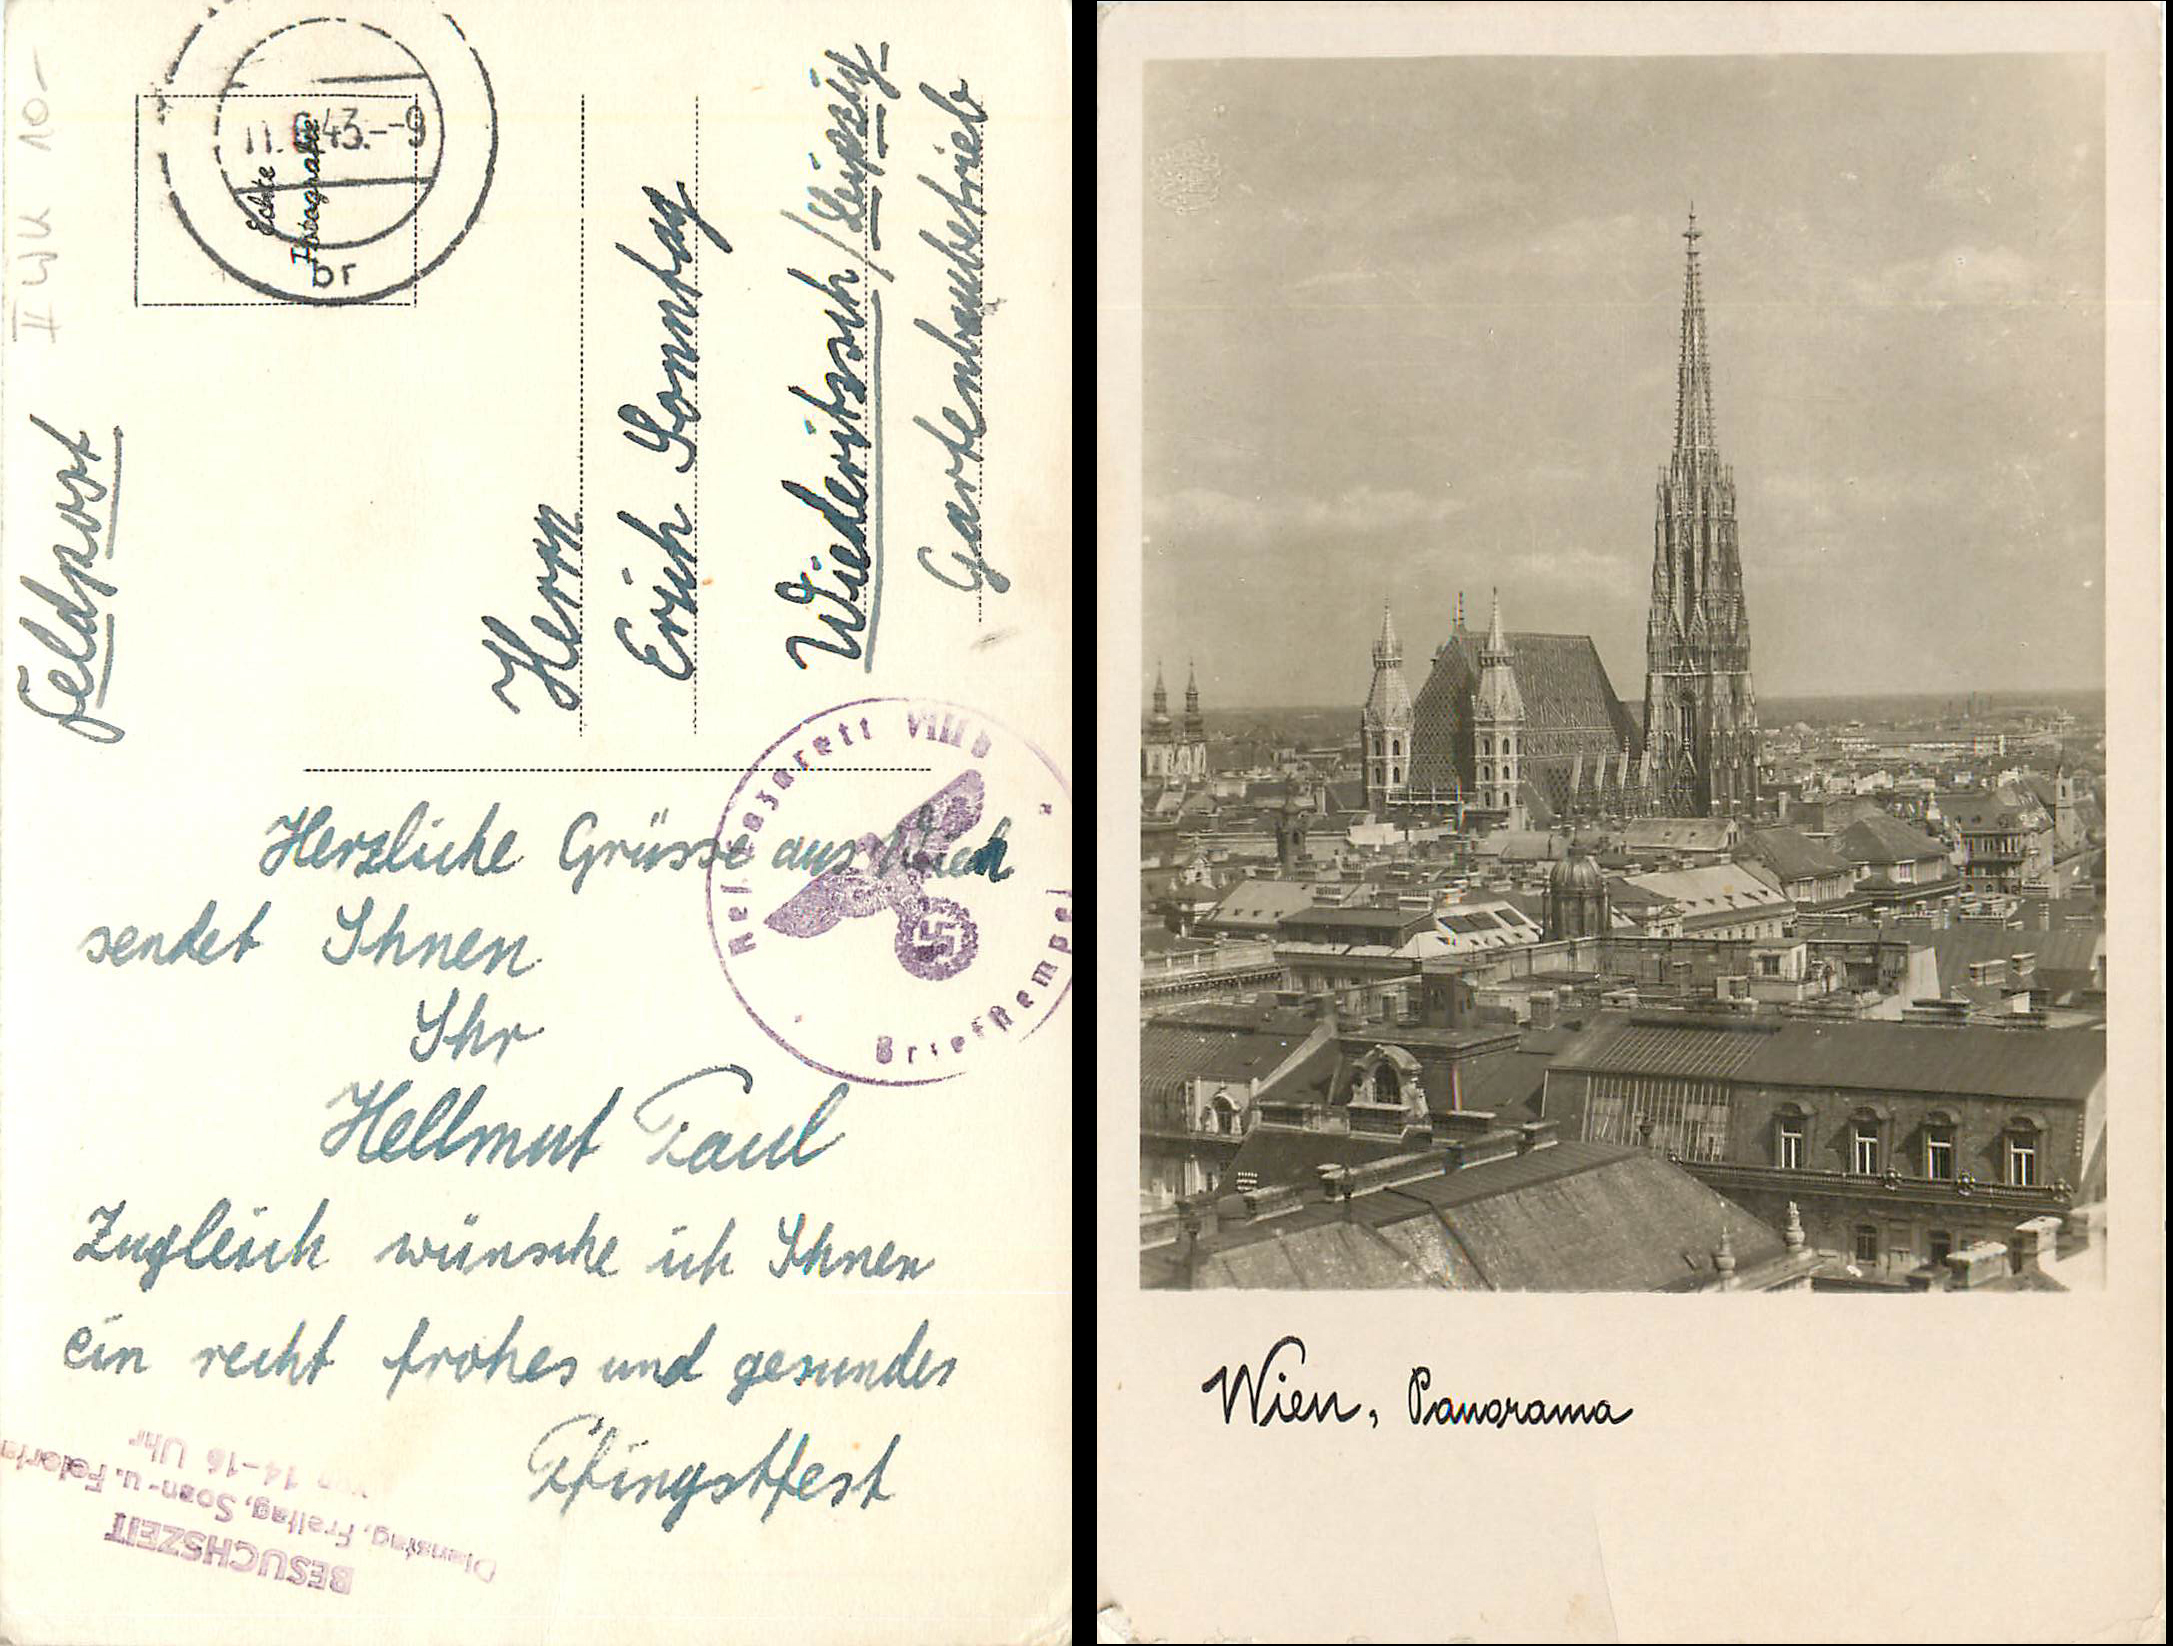 II WK 10-
Feldpost
11. 6.43.--9
br
Echte
Photographie
Herrn
Erich Sonntag
Wiederitzsch/Leipzig
Gartenbaubetrieb
Res. Lazarett VIII b
Briefstempel
Herzliche Grüsse aus Wien
sendet Ihnen
Ihr
Hellmut Paul
Zugleich wünsche ich Ihnen
ein recht frohes und gesundes
Pfingstfest
BESUCHSZEIT
Dienstag, Freitag, Sonn- u. Feierta
von 14-16 Uhr
Wien, Panorama